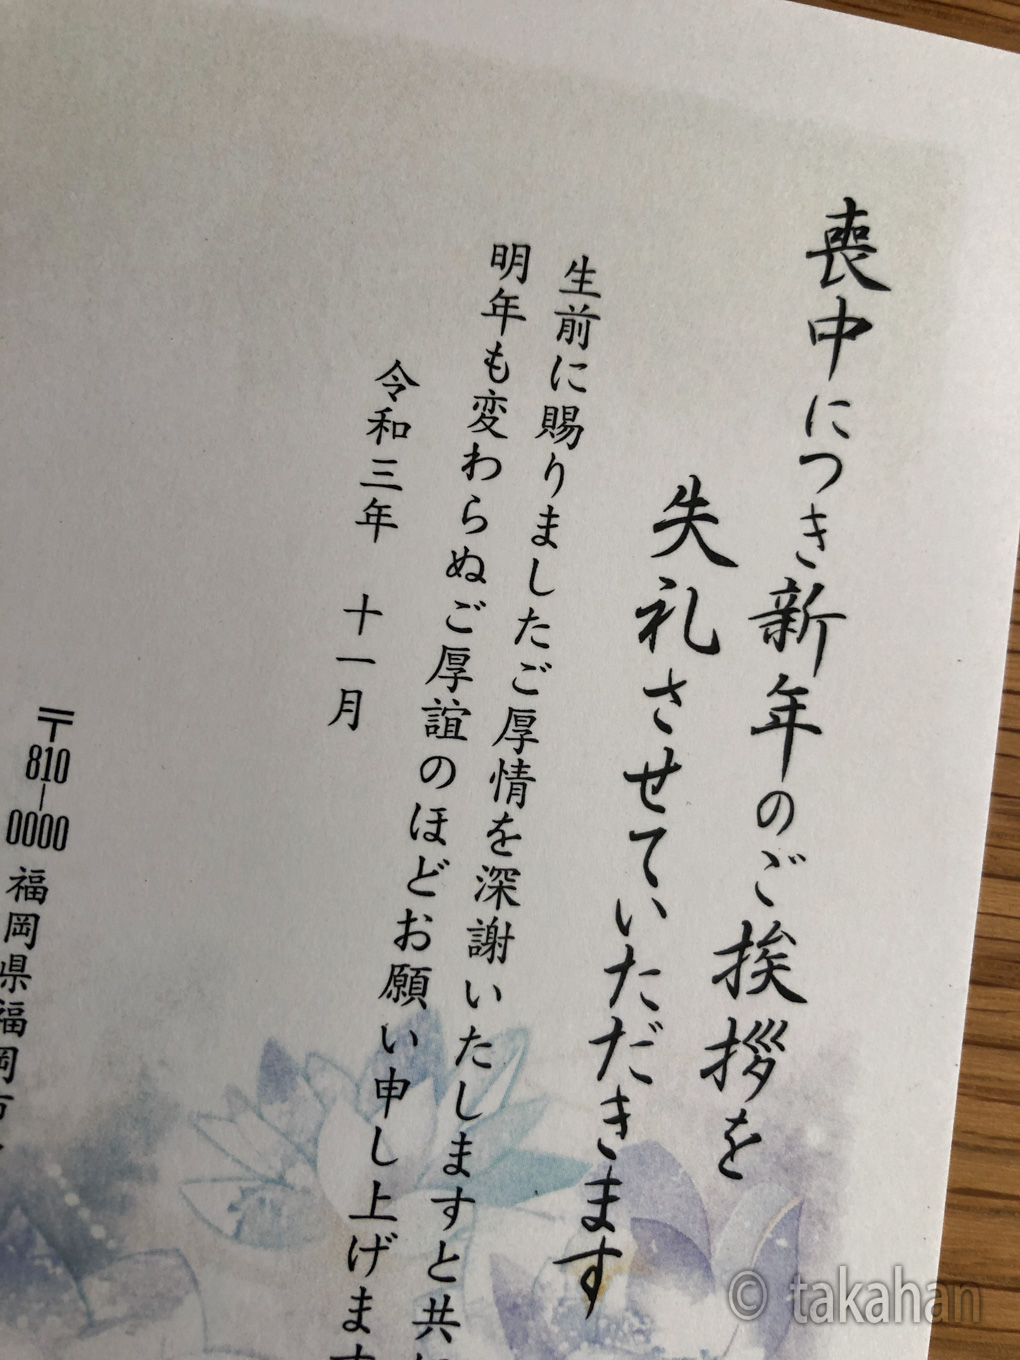 喪中につき新年のご挨拶を
失礼させていただきます
生前に賜りましたご厚情を深謝いたしますと共に
明年も変わらぬご厚誼のほどお願い申し上げます
令和三年 十一月
〒810-0000 福岡県福岡市
© takahan